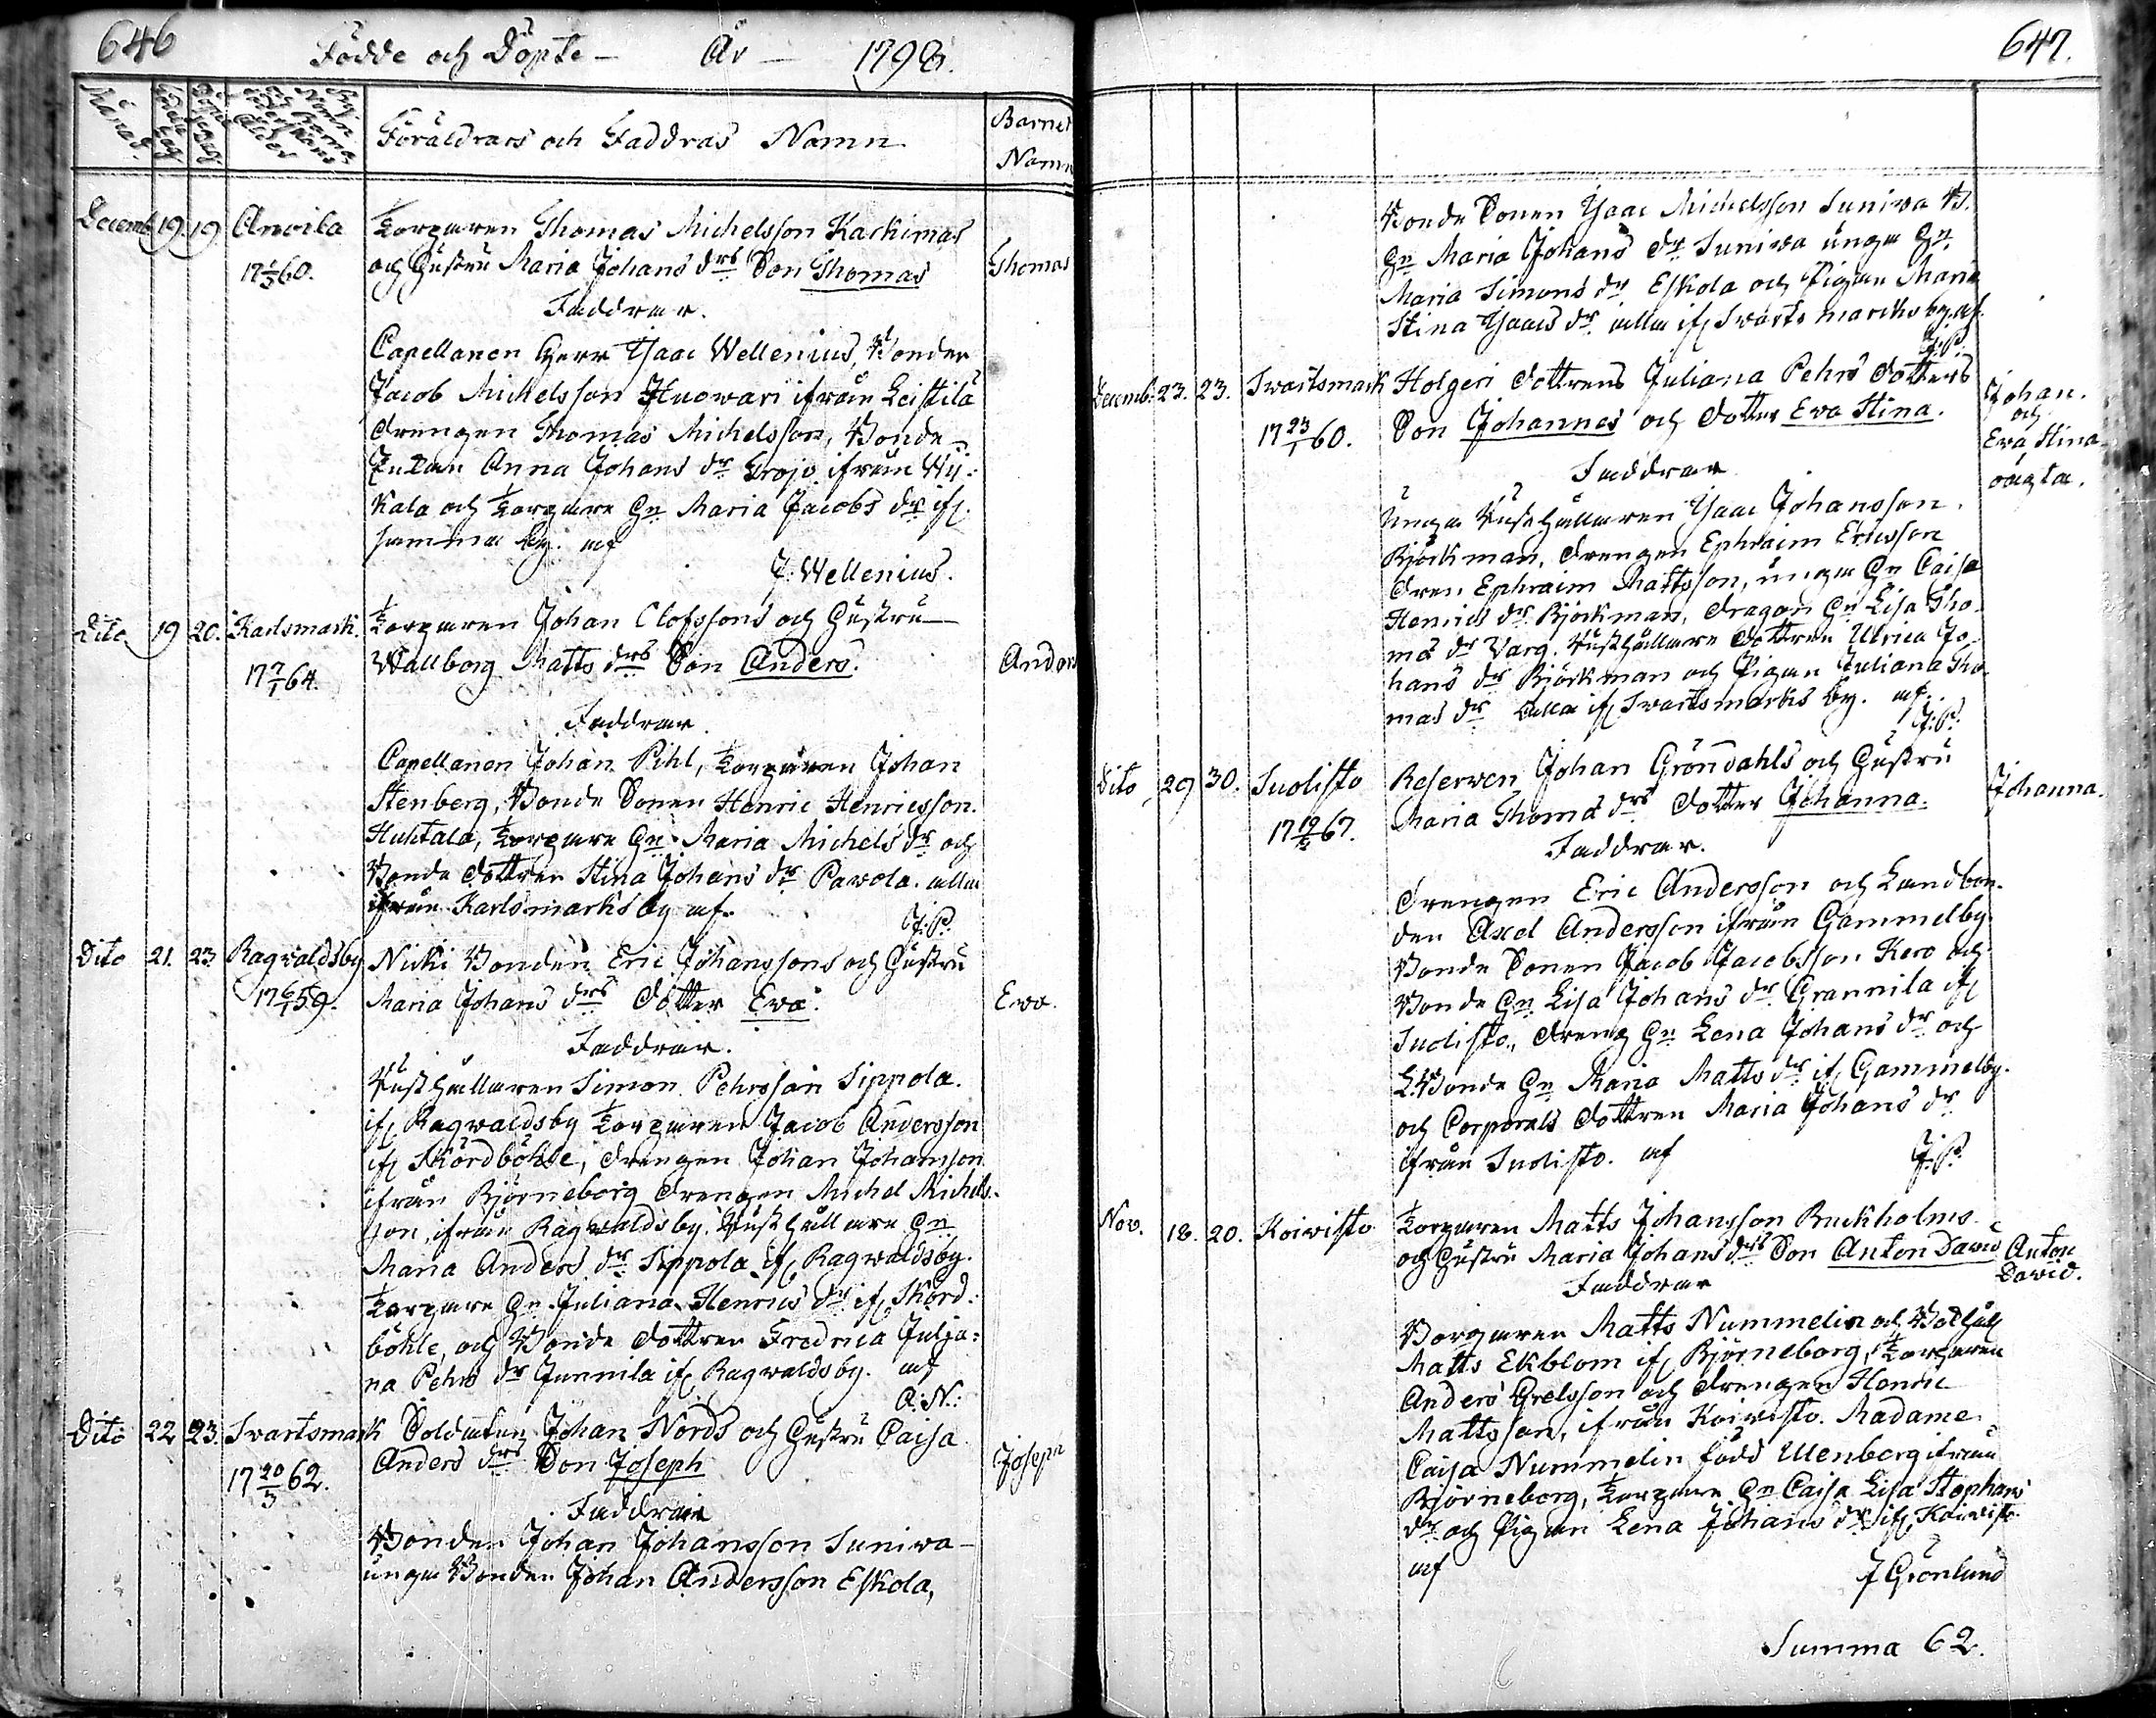 646
Födde och Döpte - År - 1798.
Månad.
Födelse dag
Föräldrars och Faddras Namn
Barnet
Namn
Decemb. 19. 19 Anvila Torparen Thomas Michelsson Karhimas
17 1/3 60. och Hustru Maria Johans drs Son Thomas Thomas
Faddrar.
Capellanen Herr Isaac Wellenius, Bonden
Jacob Michelsson Huowari ifrån Leistilä
Drengen Thomas Michelsson, Bonde
Enkan Anna Johans dr Grojs ifrån Hy:
kala och Torpare Hu Maria Jacobs dr if.
samma by. af
J: Wellenius.
Dito 19 20. Karlsmark. Torparen Johan Olofssons och Hustru
17 7/1 64. Wallborg Matts drs Son Anders. Anders
Faddrar.
Capellanen Johan Pihl, Torparen Johan
Stenberg, Bonde Sonen Henric Henricsson
Huhtala, Torpare Hu Maria Michels dr och
Bonde dottren Stina Johans dr Pavola. alla
ifrån Karlsmarks by af.
J:P.
Dito 21. 23 Ragwaldsby Nicki Bonden Eric Johanssons och Hustru
17 6/1 59. Maria Johans drs dotter Ewa. Ewa.
Faddrar.
Rusthållaren Simon Pehrsson Sippola.
if. Ragwaldsby Torparen Jacob Andersson
if. Skördböhle, drengen Johan Johansson
ifrån Björneborg drengen Michel Michels-
son, ifrån Ragwaldsby. Rusthållare Hu
Maria Anders dr Sippola if. Ragwaldsby.
Torpare Hu Juliana Henrics dr if. Skörd:
böhle, och Bonde dottren Fredrica Julja:
na Pehrs dr Junnila if. Ragwaldsby. af
A:N:
Dito 22 23. Svartsmark Soldaten Johan Nords och Hustru Caisa
17 20/3 62. Anders drs Son Joseph Joseph
Faddrar
Bonden Johan Johansson Suniwa
unga Bonden Johan Andersson Eskola,
647.
Bonde Sonen Isaac Michelsson Suniwa B.
Hu Maria Johans dr Suniwa unga Hu
Maria Simons dr Eskola och Pigan Maria
Stina Isaacs dr alla if. Swartsmarks by. af.
J:P.
Decemb. 23. 23. Swartsmark Holgeri dottrens Juliana Pehrs dotters Johan.
17 23/1 60. Son Johannes och dotter Eva Stina. och
Eva Stina
Faddrar
oägta.
Unga Rusthållaren Isaac Johansson
Björkman, drengen Ephraim Ericsson
dren Ephraim Mattsson, unga Hu Caisa
Henrics dr Björkman, dragon Hu Lisa Tho
mä dr Varg. Rusthållare dottren Ulrica Jo
hans dr Björkman och Pigan Juliana Tho
mas dr alla if. Swartsmarks by. af.
J:P.
Dito 29 30. Suolisto Reserven Johan Gröndahls och Hustru
17 19/5 67. Maria Thomä drs dotter Johanna. Johanna.
Faddrar.
drengen Eric Andersson och Landbon-
den Axel Andersson ifrån Gammelby
Bonde Sonen Jacob Jacobsson Kero och
Bonde Hu Lisa Johans dr Grannila if
Suolisto, dreng Hu Lena Johans dr och
L.Bonde Hu Maria Matts dr if. Gammelby.
och Corporals dottren Maria Johans dr
ifrån Suolisto. af
J:P.
Nov. 18. 20. Koiwisto Torparen Matts Johansson Buckholms
och Hustru Maria Johans drs Son Anton David Anton
David.
Faddrar
Borgaren Matts Nummelin och
Matts Ekblom if. Björneborg, Torparen
Anders Grelsson och drengen Henric
Mattsson, ifrån Koiwisto. Madame
Caisa Nummelin född Ulenberg ifrån
Björneborg, Torpare Hu Caisa Lisa Stephans
dr och Pigan Lena Johans dr if. Koiwisto.
af
J Grönlund
Summa 62.